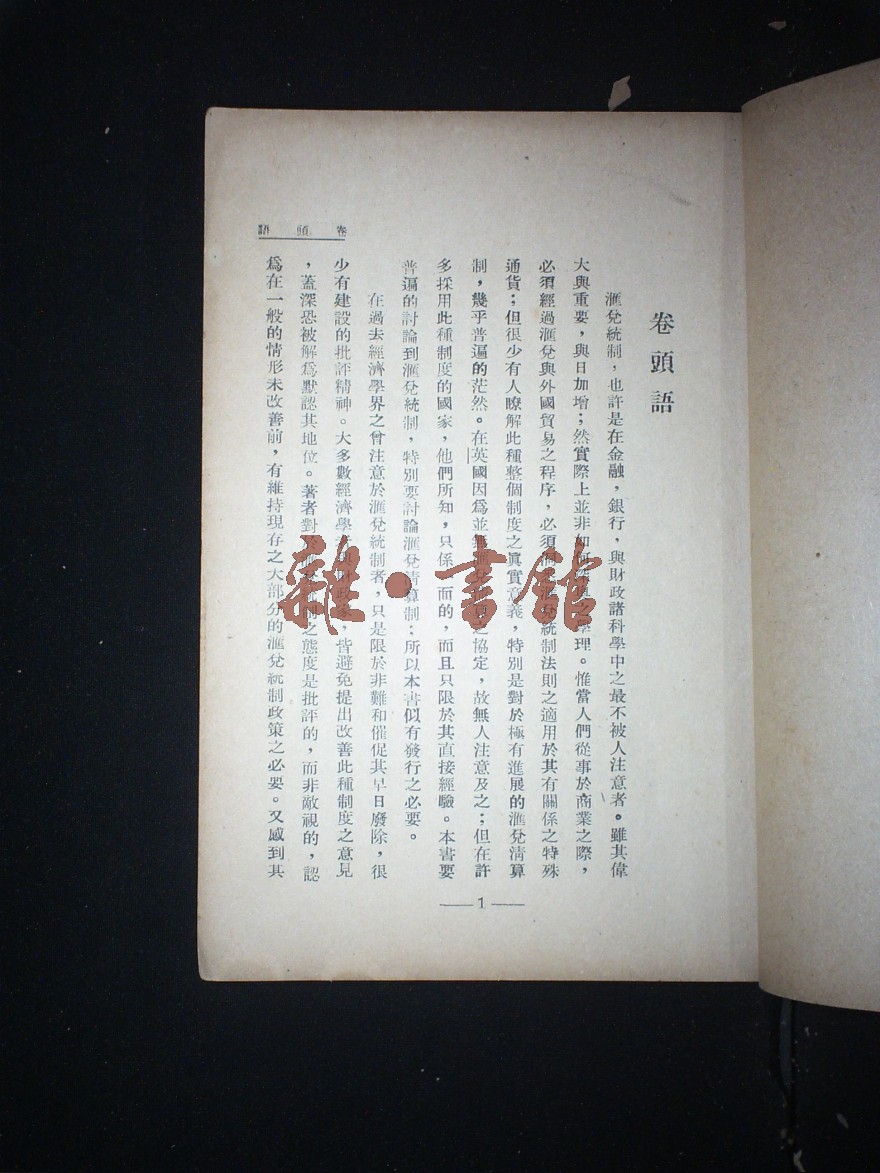 卷頭語
卷頭語
滙兌統制，也許是在金融，銀行，與財政諸科學中之最不被人注意者。雖其偉
大與重要，與日加增；然實際上並非如何之學理。惟當人們從事於商業之際，
必須經過滙兌與外國貿易之程序，必須滙兌統制法則之適用於其有關係之特殊
通貨；但很少有人瞭解此種整個制度之眞實意義，特別是對於極有進展的滙兌淸算
制，幾乎普遍的茫然。在英國因爲並無滙兌之協定，故無人注意及之；但在許
多採用此種制度的國家，他們所知，只係而的，而且只限於其直接經驗。本書要
普遍的討論到滙兌統制，特別要討論滙兌淸算制；所以本書似有發行之必要。
在過去經濟學界之曾注意於滙兌統制者，只是限於非難和催促其早日廢除，很
少有建設的批評精神。大多數經濟學者與財政家，皆避免提出改善此種制度之意見
，蓋深恐被解爲默認其地位。著者對於滙兌統制之態度是批評的，而非敵視的，認
爲在一般的情形未改善前，有維持現存之大部分的滙兌統制政策之必要。又感到其
1
雜·書館